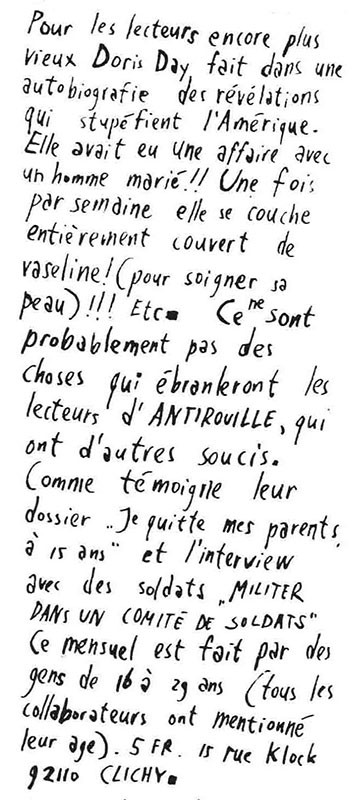 Pour les lecteurs encore plus
vieux Doris Day fait dans une
autobiografie des révélations
qui stupéfient l'Amérique.
Elle avait eu une affaire avec
un homme marié!! Une fois
par semaine elle se couche
entièrement couvert de
vaseline! (pour soigner sa
peau)!!! Etc. Ce ne sont
probablement pas des
choses qui ébrankeront les
lecteurs d'ANTIROUILLE, qui
ont d'autres soucis.
Comme témoigne leur
dossier „Je quitte mes parents
à 15 ans" et l'interview
avec des soldats „MILITER
DANS UN COMITÉ DE SOLDATS"
Ce mensuel est fait par des
gens de 16 à 29 ans (tous les
collaborateurs ont mentionné
leur age). 5 FR. 15 rue Klock
92110 CLICHY.